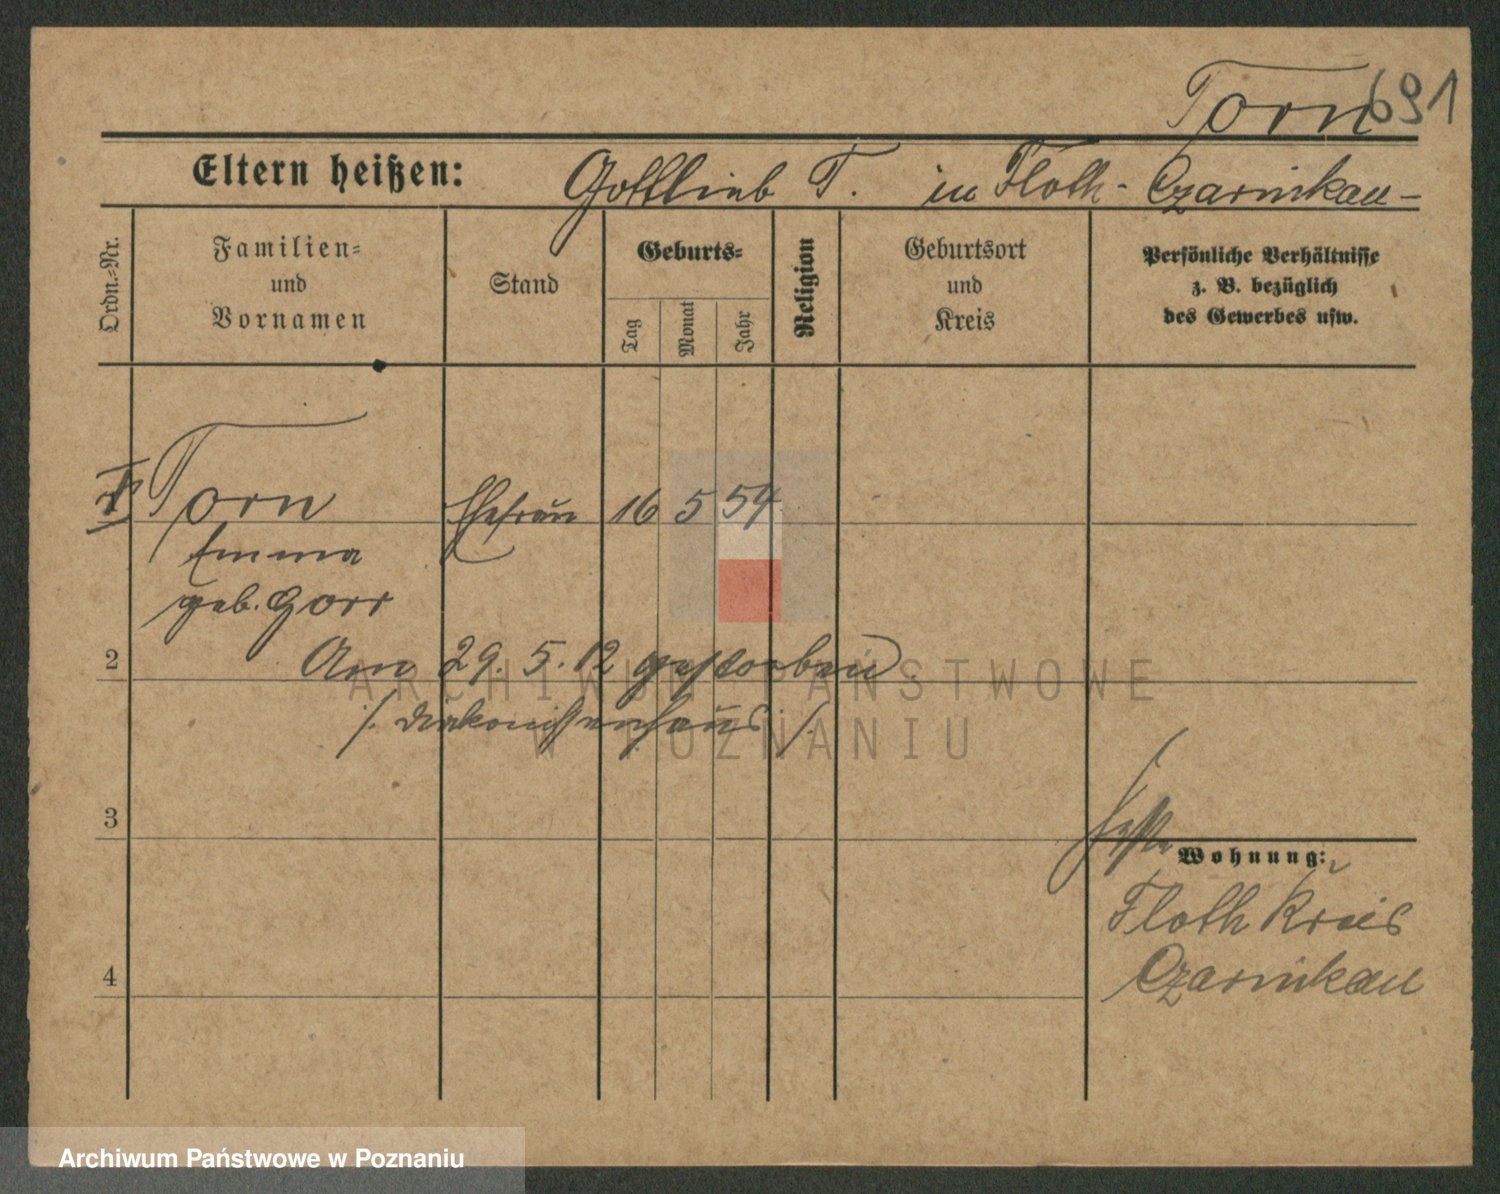 Torn 691
Eltern heißen: Gottlieb T. in Floth - Czarnikau -
Ordn.=Nr.
Familien=
und
Vornamen
Stand
Geburts=
Tag
Monat
Jahr
Religion
Geburtsort
und
Kreis
Persönliche Verhältnisse
z. B. bezüglich
des Gewerbes usw.
Torn Ehefrau 16 5 54
Emma
geb. Gorr
2 Am 29. 5. 12 gestorben
/. Diakonissenhaus ./.
3
Wohnung:
Floth Kreis
4 Czarnikau
ARCHIWUM PAŃSTWOWE
W POZNANIU
Archiwum Państwowe w Poznaniu